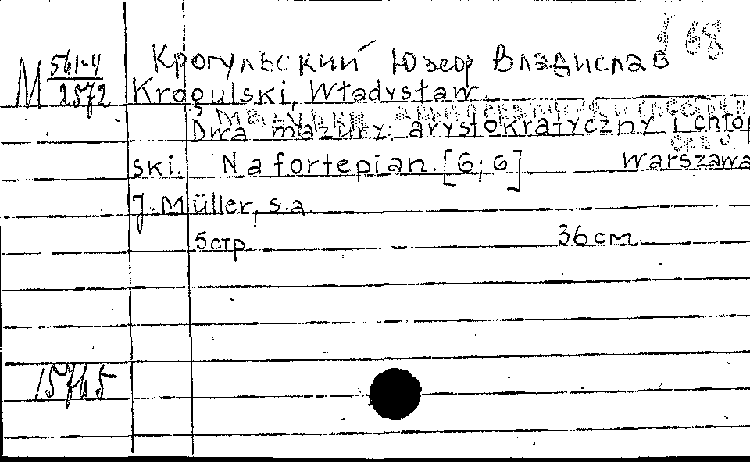 Крогульский Юзеф Владислав 68
M 561-4
2572
Krogulski, Władysław.
Dwa mazury: arystokratyczny i chłop
ski. Na fortepian. [G; G] Warszawa
J. Müller, s.a.
5 стр. 36 cm.
15765